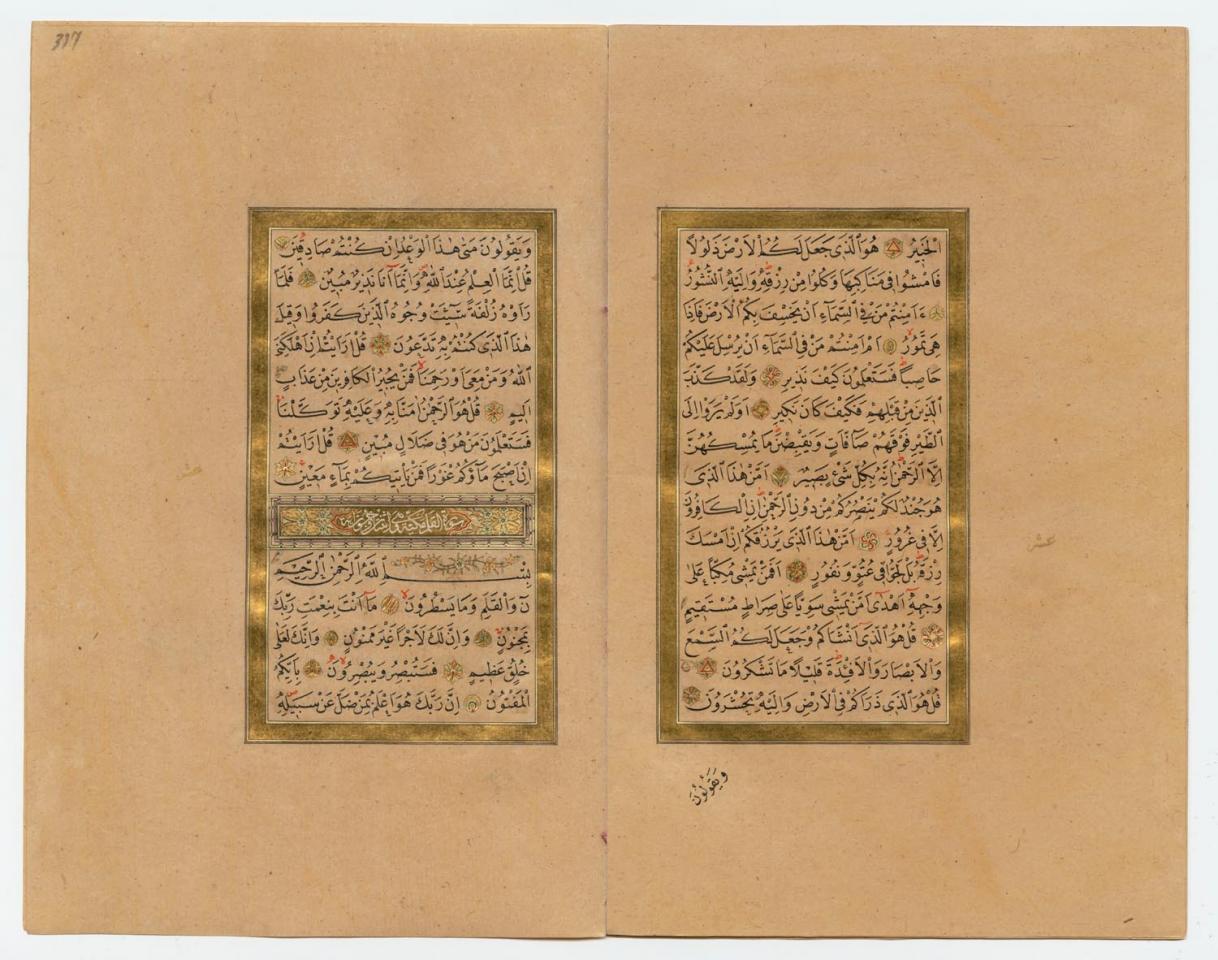 الْخَبِيرُ هُوَ الَّذِي جَعَلَ لَكُمُ الْاَرْضَ ذَلُولًا
فَامْشُوا فِي مَنَاكِبِهَا وَكُلُوا مِنْ رِزْقِهِ وَاِلَيْهِ النُّشُورُ
ءَاَمِنْتُمْ مَنْ فِي السَّمَاءِ اَنْ يَخْسِفَ بِكُمُ الْاَرْضَ فَاِذَا
هِيَ تَمُورُ اَمْ اَمِنْتُمْ مَنْ فِي السَّمَاءِ اَنْ يُرْسِلَ عَلَيْكُمْ
حَاصِبًا فَسَتَعْلَمُونَ كَيْفَ نَذِيرِ وَلَقَدْ كَذَّبَ
الَّذِينَ مِنْ قَبْلِهِمْ فَكَيْفَ كَانَ نَكِيرِ اَوَلَمْ يَرَوْا اِلَى
الطَّيْرِ فَوْقَهُمْ صَافَّاتٍ وَيَقْبِضْنَ مَا يُمْسِكُهُنَّ
اِلَّا الرَّحْمٰنُ اِنَّهُ بِكُلِّ شَيْءٍ بَصِيرٌ اَمَّنْ هٰذَا الَّذِي
هُوَ جُنْدٌ لَكُمْ يَنْصُرُكُمْ مِنْ دُونِ الرَّحْمٰنِ اِنِ الْكَافِرُونَ
اِلَّا فِي غُرُورٍ اَمَّنْ هٰذَا الَّذِي يَرْزُقُكُمْ اِنْ اَمْسَكَ
رِزْقَهُ بَلْ لَجُّوا فِي عُتُوٍّ وَنُفُورٍ اَفَمَنْ يَمْشِي مُكِبًّا عَلَى
وَجْهِهِ اَهْدٰى اَمَّنْ يَمْشِي سَوِيًّا عَلَى صِرَاطٍ مُسْتَقِيمٍ
قُلْ هُوَ الَّذِي اَنْشَاَكُمْ وَجَعَلَ لَكُمُ السَّمْعَ
وَالْاَبْصَارَ وَالْاَفْئِدَةَ قَلِيلًا مَا تَشْكُرُونَ
قُلْ هُوَ الَّذِي ذَرَاَكُمْ فِي الْاَرْضِ وَاِلَيْهِ تُحْشَرُونَ
وَيَقُولُونَ
عشر
337
وَيَقُولُونَ مَتٰى هٰذَا الْوَعْدُ اِنْ كُنْتُمْ صَادِقِينَ
قُلْ اِنَّمَا الْعِلْمُ عِنْدَ اللّٰهِ وَاِنَّمَا اَنَا نَذِيرٌ مُبِينٌ فَلَمَّا
رَاَوْهُ زُلْفَةً سِيئَتْ وُجُوهُ الَّذِينَ كَفَرُوا وَقِيلَ
هٰذَا الَّذِي كُنْتُمْ بِهِ تَدَّعُونَ قُلْ اَرَاَيْتُمْ اِنْ اَهْلَكَنِيَ
اللّٰهُ وَمَنْ مَعِيَ اَوْ رَحِمَنَا فَمَنْ يُجِيرُ الْكَافِرِينَ مِنْ عَذَابٍ
اَلِيمٍ قُلْ هُوَ الرَّحْمٰنُ اٰمَنَّا بِهِ وَعَلَيْهِ تَوَكَّلْنَا
فَسَتَعْلَمُونَ مَنْ هُوَ فِي ضَلَالٍ مُبِينٍ قُلْ اَرَاَيْتُمْ
اِنْ اَصْبَحَ مَاؤُكُمْ غَوْرًا فَمَنْ يَأْتِيكُمْ بِمَاءٍ مَعِينٍ
سورة القلم مكية وهي اثنتان وخمسون آية
بِسْمِ اللّٰهِ الرَّحْمٰنِ الرَّحِيمِ
نٓ وَالْقَلَمِ وَمَا يَسْطُرُونَ مَا اَنْتَ بِنِعْمَتِ رَبِّكَ
بِمَجْنُونٍ وَاِنَّ لَكَ لَاَجْرًا غَيْرَ مَمْنُونٍ وَاِنَّكَ لَعَلٰى
خُلُقٍ عَظِيمٍ فَسَتُبْصِرُ وَيُبْصِرُونَ بِاَيِّكُمُ
الْمَفْتُونُ اِنَّ رَبَّكَ هُوَ اَعْلَمُ بِمَنْ ضَلَّ عَنْ سَبِيلِهِ